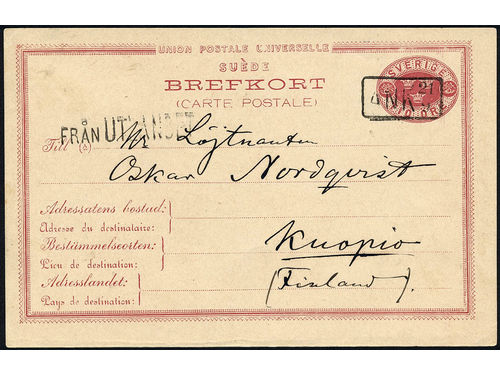 UNION POSTALE UNIVERSELLE
SUÈDE
BREFKORT
(CARTE POSTALE)
SVERIGE
21
ANK
FRÅN UTLANDET
Till
Hr Löjtnanten
Oskar Nordqvist
Adressatens bostad:
Adresse du destinataire:
Bestämmelseorten:
Kuopio
Lieu de destination:
Adresslandet:
(Finland).
Pays de destination: